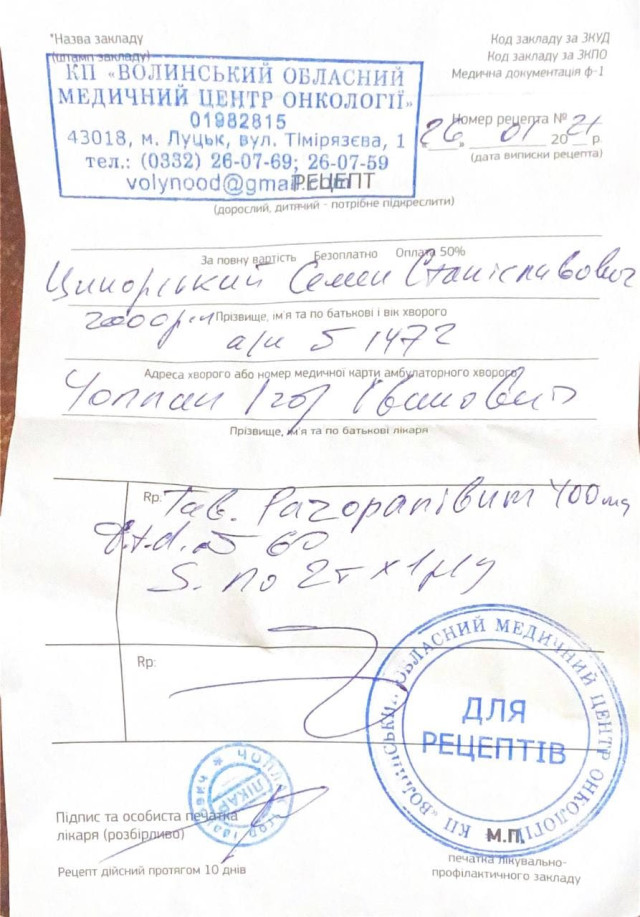 *Назва закладу
(штамп закладу)
КП «ВОЛИНСЬКИЙ ОБЛАСНИЙ
МЕДИЧНИЙ ЦЕНТР ОНКОЛОГІЇ»
01982815
43018, м. Луцьк, вул. Тімірязєва, 1
тел.: (0332) 26-07-69; 26-07-59
volynood@gmail.com
Код закладу за ЗКУД
Код закладу за ЗКПО
Медична документація ф-1
Номер рецепта №
26 01 2021 р.
(дата виписки рецепта)
РЕЦЕПТ
(дорослий, дитячий - потрібне підкреслити)
За повну вартість Безоплатно Оплата 50%
Семен Станіславович
Прізвище, ім'я та по батькові і вік хворого
5 1472
Адреса хворого або номер медичної карти амбулаторного хворого
Чоплан Ігор Іванович
Прізвище, ім'я та по батькові лікаря
Rp: Tab. 400 mg
d.t.d. 60
S. по 2т х 1р/д
Rp:
ОБЛАСНИЙ МЕДИЧНИЙ ЦЕНТР ОНКОЛОГІЇ КП "ВОЛИНСЬКИЙ
ДЛЯ
РЕЦЕПТІВ
М.П.
ЛІКАР
Підпис та особиста печатка
лікаря (розбірливо)
Рецепт дійсний протягом 10 днів
печатка лікувально-
профілактичного закладу